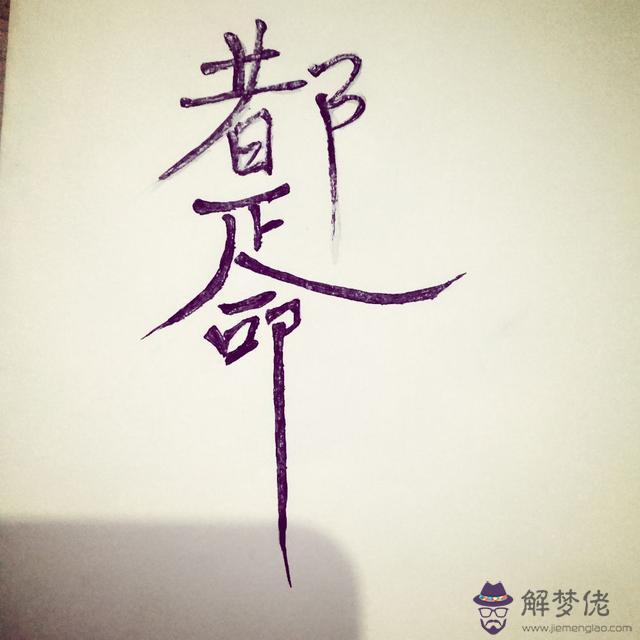 都是命
解梦佬
www.jiemenglao.com